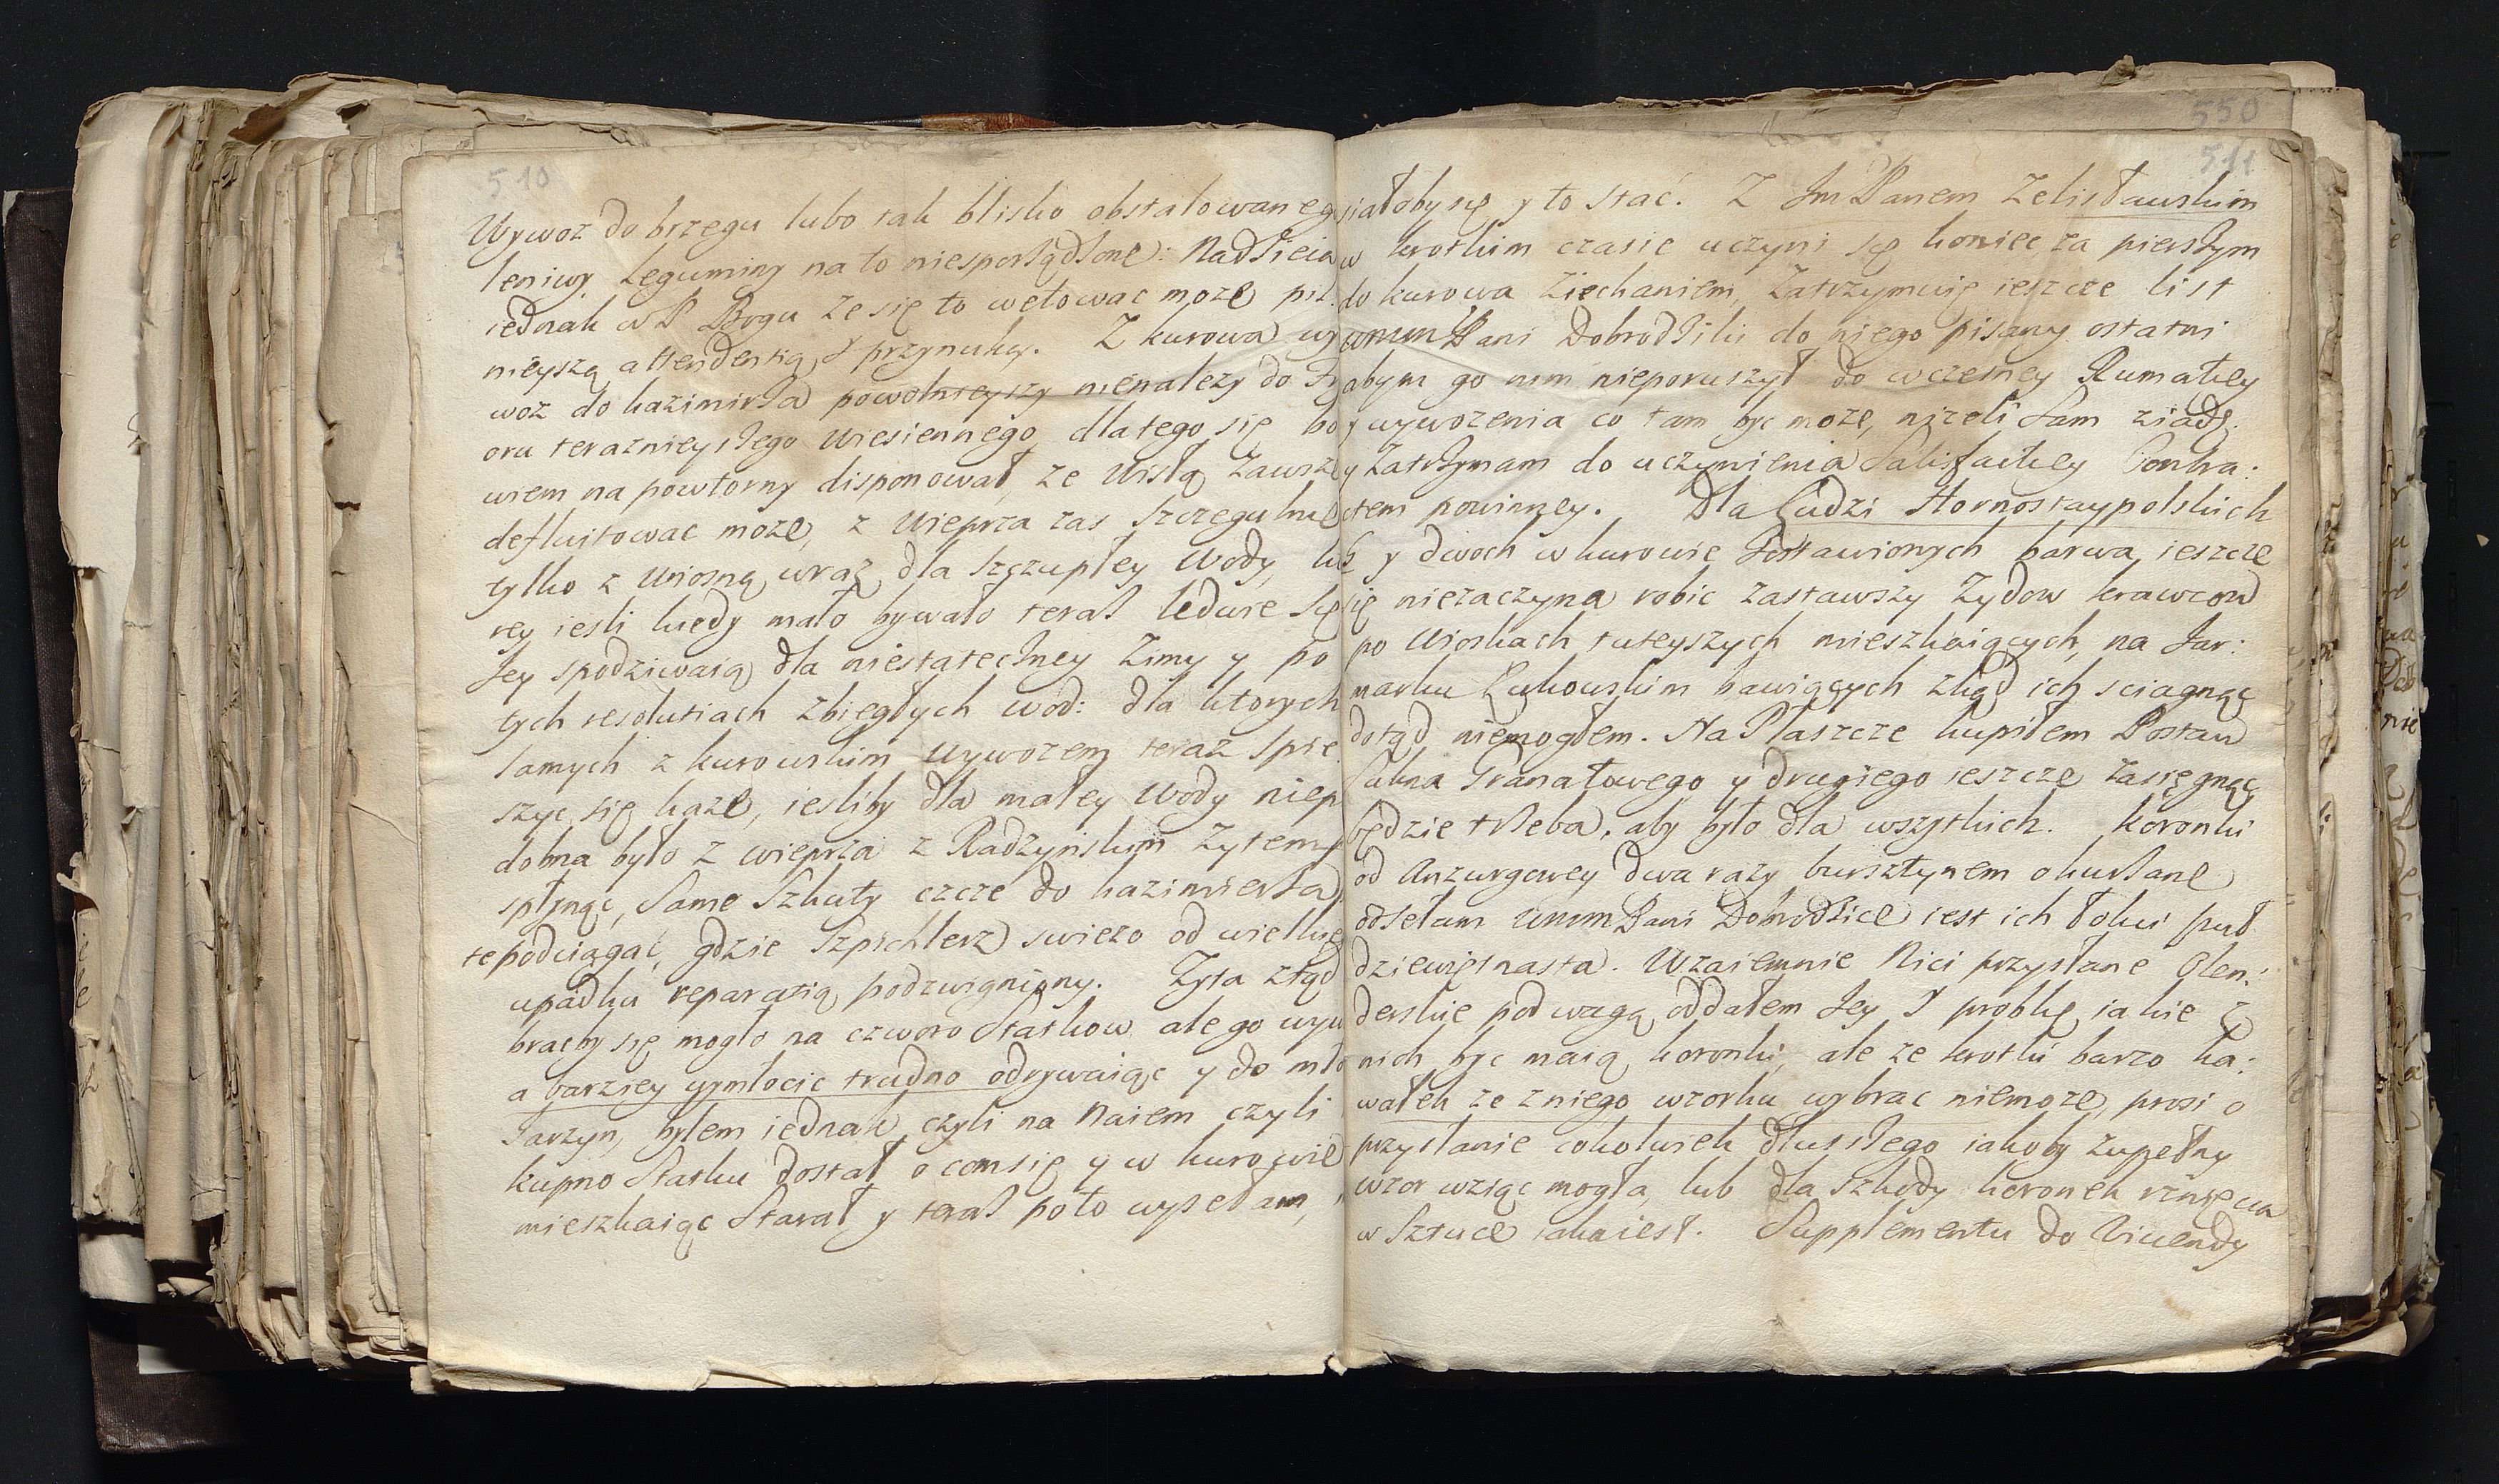 510
Wywoz do brzegu lubo tak blisko obstalowaneg
leniwy Leguminy na to niesporządzone: Nadzieia
iednak w P Bogu ze się to wetowac może pil:
nieyszą attendentią y przynuką. Z Kurowa wy
woz do Kazimirza powolnieyszy nienalezy do Fr
oru teraznieyszego Wiesiennego, dlatego się bo
wiem na powtorny disponował, ze Wisłą zawsze
defluitowac może, z Wieprza zas szczegulnie
tylko z Wiosną wraz dla szczupłey Wody, kto
rey iesli kiedy mało bywało teraz ledwie się
Jey spodziwaią dla niestateczney Zimy y po
tych resolutiach zbiegłych wod: dla ktorych
samych z Kurowskim wywozem teraz spie
szyc się każe, iesliby dla małey Wody niep
dobna było z Wieprza z Radzynskim Zytem
spłynąc, Same Szkuty czcze do Kazimierza
te podciągac, gdzie Szpichlerz swiezo od wielkie
upadku reparatią podzwigniony. Zyta ztąd
bracby się mogło na czworo Statkow ale go wyw
a barziey wymłocic trudno odrywaiąc y do mło
Jarzyn, bylem iednak czyli na Naiem czyli
kupno Statku dostał o com się y w Kurowie
mieszkaiąc Starał y teraz po to wysełam,
550
511
siałoby się y to stać. Z Jm Panem Zelisławskim
w krotkim czasie uczyni się koniec za pierszym
do Kurowa Ziechaniem, Zatrzymuię ieszcze list
WMM Pani Dobrodziki do niego pisany ostatni
abym go nim nieporuszył do wczesney Rumatiey
y wywozenia co tam byc może, niżeli Sam ziadę
y Zatrzymam do uczynienia Satisfactiey Contra:
ctem powinney. Dla Ludzi Hornostaypolskich
6 y dwoch w Kurowie zostawionych barwa ieszcze
się niezaczyna robic zastawszy Zydow krawcow
po Wioskach tuteyszych mieszkaiących, na Jar:
marku Łukowskim bawiących zkąd ich sciagnąc
dotąd niemogłem. Na Płaszcze kupiłem Postaw
Sukna Granatowego y drugiego ieszcze zasięgnąc
będzie trzeba, aby było dla wszytkich. Koronki
od Anzurgowey dwa razy bursztynem okurzane
odsełam WMM Pani Dobrodzice iest ich łokci puł
dziewiętnasta. Wzaiemnie Nici przysłane Olen:
derskie pod wagą oddałem Jey y probkę iakie z
nich byc maią koronki, ale ze krotki barzo ka:
wałek ze z niego wzorku wybrac niemoże, prosi o
przysłanie cokolwiek dłuższego iakoby zupełny
wzor wziąc mogła, lub dla szkody koronek rznięcia
w Sztuce iaka iest. Supplementu do Viuendy